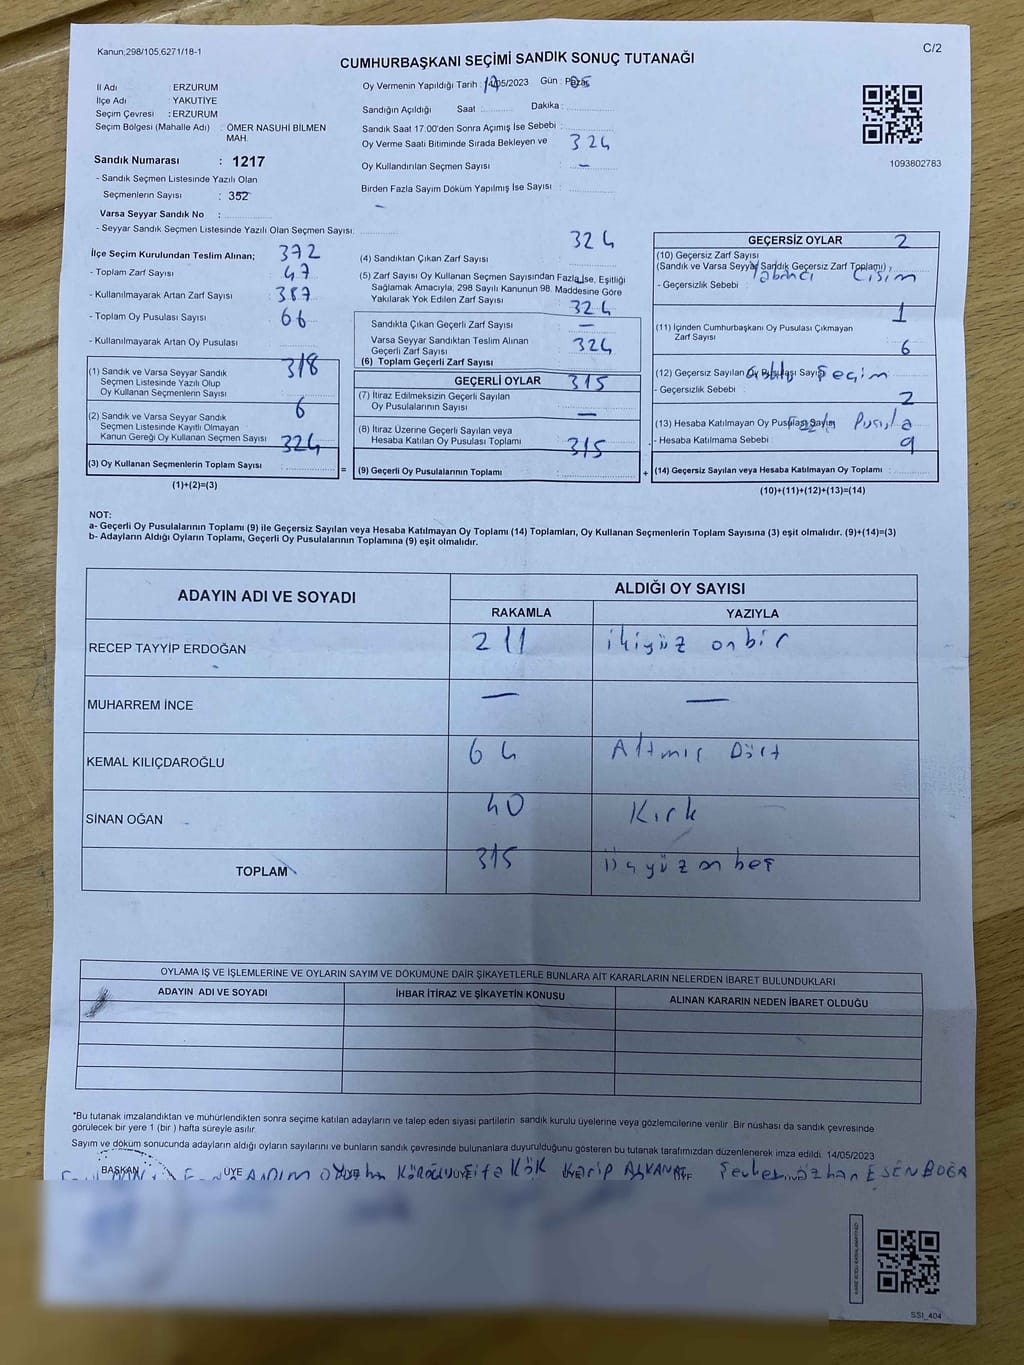 Kanun;298/105,6271/18-1
C/2
CUMHURBAŞKANI SEÇİMİ SANDIK SONUÇ TUTANAĞI
İl Adı : ERZURUM
İlçe Adı : YAKUTİYE
Seçim Çevresi : ERZURUM
Seçim Bölgesi (Mahalle Adı) : ÖMER NASUHİ BİLMEN MAH.
Sandık Numarası : 1217
- Sandık Seçmen Listesinde Yazılı Olan
Seçmenlerin Sayısı : 352
Varsa Seyyar Sandık No :
- Seyyar Sandık Seçmen Listesinde Yazılı Olan Seçmen Sayısı:
Oy Vermenin Yapıldığı Tarih : 14/05/2023 Gün : Pazar
Sandığın Açıldığı Saat : Dakika :
Sandık Saat 17.00'den Sonra Açımış İse Sebebi :
Oy Verme Saati Bitiminde Sırada Bekleyen ve 324
Oy Kullandırılan Seçmen Sayısı : —
Birden Fazla Sayım Döküm Yapılmış İse Sayısı :
1093802783
İlçe Seçim Kurulundan Teslim Alınan; 372
- Toplam Zarf Sayısı : 47
- Kullanılmayarak Artan Zarf Sayısı : 387
- Toplam Oy Pusulası Sayısı : 66
- Kullanılmayarak Artan Oy Pusulası :
(1) Sandık ve Varsa Seyyar Sandık 318
Seçmen Listesinde Yazılı Olup
Oy Kullanan Seçmenlerin Sayısı :
(2) Sandık ve Varsa Seyyar Sandık 6
Seçmen Listesinde Kayıtlı Olmayan
Kanun Gereği Oy Kullanan Seçmen Sayısı : 324
(3) Oy Kullanan Seçmenlerin Toplam Sayısı :
(1)+(2)=(3)
324
(4) Sandıktan Çıkan Zarf Sayısı :
(5) Zarf Sayısı Oy Kullanan Seçmen Sayısından Fazla İse, Eşitliği
Sağlamak Amacıyla, 298 Sayılı Kanunun 98. Maddesine Göre
Yakılarak Yok Edilen Zarf Sayısı : 324
Sandıkta Çıkan Geçerli Zarf Sayısı : —
Varsa Seyyar Sandıktan Teslim Alınan 324
Geçerli Zarf Sayısı :
(6) Toplam Geçerli Zarf Sayısı :
GEÇERLİ OYLAR 315
(7) İtiraz Edilmeksizin Geçerli Sayılan
Oy Pusulalarının Sayısı : —
(8) İtiraz Üzerine Geçerli Sayılan veya
Hesaba Katılan Oy Pusulası Toplamı : 315
= (9) Geçerli Oy Pusulalarının Toplamı :
GEÇERSİZ OYLAR 2
(10) Geçersiz Zarf Sayısı
(Sandık ve Varsa Seyyar Sandık Geçersiz Zarf Toplamı) :
- Geçersizlik Sebebi : Yabancı Cisim
1
(11) İçinden Cumhurbaşkanı Oy Pusulası Çıkmayan
Zarf Sayısı : 6
(12) Geçersiz Sayılan Oy Pusulası Sayısı : Seçim
- Geçersizlik Sebebi : 2
(13) Hesaba Katılmayan Oy Pusulası Sayısı : Fazla Pusula
- Hesaba Katılmama Sebebi : 9
+ (14) Geçersiz Sayılan veya Hesaba Katılmayan Oy Toplamı :
(10)+(11)+(12)+(13)=(14)
NOT:
a- Geçerli Oy Pusulalarının Toplamı (9) ile Geçersiz Sayılan veya Hesaba Katılmayan Oy Toplamı (14) Toplamları, Oy Kullanan Seçmenlerin Toplam Sayısına (3) eşit olmalıdır. (9)+(14)=(3)
b- Adayların Aldığı Oyların Toplamı, Geçerli Oy Pusulalarının Toplamına (9) eşit olmalıdır.
ADAYIN ADI VE SOYADI ALDIĞI OY SAYISI
RAKAMLA YAZIYLA
RECEP TAYYİP ERDOĞAN 211 ikiyüz onbir
MUHARREM İNCE — —
KEMAL KILIÇDAROĞLU 64 Altmış Dört
SİNAN OĞAN 40 Kırk
TOPLAM 315 üçyüz on beş
OYLAMA İŞ VE İŞLEMLERİNE VE OYLARIN SAYIM VE DÖKÜMÜNE DAİR ŞİKAYETLERLE BUNLARA AİT KARARLARIN NELERDEN İBARET BULUNDUKLARI
ADAYIN ADI VE SOYADI İHBAR İTİRAZ VE ŞİKAYETİN KONUSU ALINAN KARARIN NEDEN İBARET OLDUĞU
*Bu tutanak imzalandıktan ve mühürlendikten sonra seçime katılan adayların ve talep eden siyasi partilerin sandık kurulu üyelerine veya gözlemcilerine verilir .Bir nushası da sandık çevresinde
görülecek bir yere 1 (bir ) hafta süreyle asılır.
Sayım ve döküm sonucunda adayların aldığı oyların sayılarını ve bunların sandık çevresinde bulunanlara duyurulduğunu gösteren bu tutanak tarafımızdan düzenlenerek imza edildi. 14/05/2023
BAŞKAN ÜYE ÜYE ÜYE ÜYE ÜYE
SSI_404